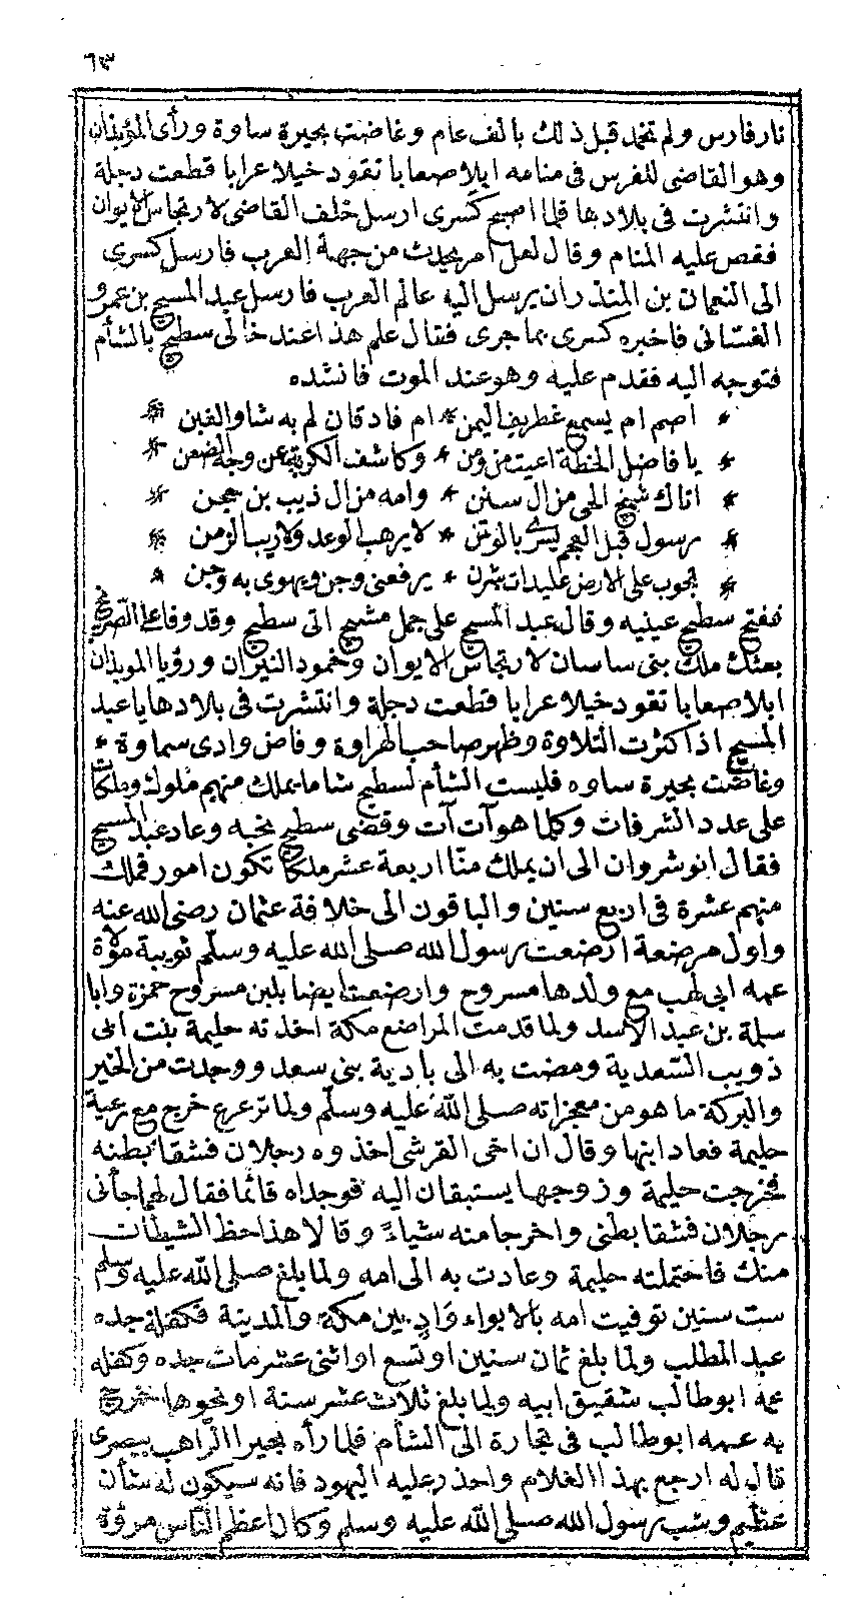 ٦٣
نار فارس ولم تخمد قبل ذلك بالف عام وغاضت بحيرة ساوة ورأى الموبذان
وهو القاضى للفرس فى منامه ابلا صعابا تقود خيلا عرابا قطعت دجلة
وانتشرت فى بلادها فلما اصبح كسرى ارسل خلف القاضى لارتجاس الايوان
فقص عليه المنام وقال لعل امر يحدث من جهة العرب فارسل كسرى
الى النعمان بن المنذر ان يرسل اليه عالم العرب فارسل عبد المسيح بن عمرو
الغسانى فاخبره كسرى بما جرى فقال علم هذا عند خالى سطيح بالشأم
فتوجه اليه فقدم عليه وهو عند الموت فانشده
* اصم ام يسمع غطريف اليمن * ام فاد فان لم به شاو الفين *
* يا فاضل الخطة اعيت من ومن * وكاشف الكربة عن وجه الضعن *
* اتاك شيخ الحى من ال سنن * وامه من ال ذيب بن حجن *
* رسول قبل العجم يسرى بالوتن * لا يرهب الوعد ولا ريب الزمن *
* تجوب على الارض عليدات شرن * يرفعنى وجن ويهوى به وجن *
ففتح سطيح عينيه وقال عبد المسيح على جمل مشيح اتى سطيح وقد وفا على الضريح
بعثك ملك بنى ساسان لارتجاس الايوان وخمود النيران ورؤيا الموبذان
ابلا صعابا تقود خيلا عرابا قطعت دجلة وانتشرت فى بلادها يا عبد
المسيح اذا كثرت التلاوة وظهر صاحب الهراوة وفاض وادى سماوة *
وغاضت بحيرة ساوه فليست الشأم لسطيح شاما يملك منهم ملوك وملكات
على عدد الشرفات وكلما هو آت آت وقضى سطيح نحبه وعاد عبد المسيح
فقال انوشروان الى ان يملك منا اربعة عشر ملكا تكون امور فملك
منهم عشرة فى اربع سنين والباقون الى خلافة عثمان رضى الله عنه
واول مرضعة ارضعت رسول الله صلى الله عليه وسلم ثويبة مولاة
عمه ابى لهب مع ولدها مسروح وارضعت ايضا بلبن مسروح حمزة وابا
سلمة بن عبد الاسد ولما قدمت المراضع مكة اخذته حليمة بنت ابى
ذويب السعدية ومضت به الى بادية بنى سعد ووجدت من الخير
والبركة ما هو من معجزاته صلى الله عليه وسلم ولما ترعرع خرج مع رعية
حليمة فعاد ابنها وقال ان اخى القرشى اخذوه رجلان فشقا بطنه
فخرجت حليمة وزوجها يستبقان اليه فوجداه قائما فقال لهما جأنى
رجلان فشقا بطنى واخرجا منه شياء وقالا هذا حظ الشيطان
منك فاحتملته حليمة وعادت به الى امه ولما بلغ صلى الله عليه وسلم
ست سنين توفيت امه بالابواء واد بين مكة والمدينة فكفله جده
عبد المطلب ولما بلغ ثمان سنين او تسع او اثنى عشر مات جده وكفله
عمه ابو طالب شقيق ابيه ولما بلغ ثلاث عشر سنة او نحوها خرج
به عمه ابو طالب فى تجارة الى الشأم فلما رأه بحيرا الراهب ببصرى
قال له ارجع بهذا الغلام واحذر عليه اليهود فانه سيكون له شأن
عظيم وشب رسول الله صلى الله عليه وسلم وكان اعظم الناس مروة